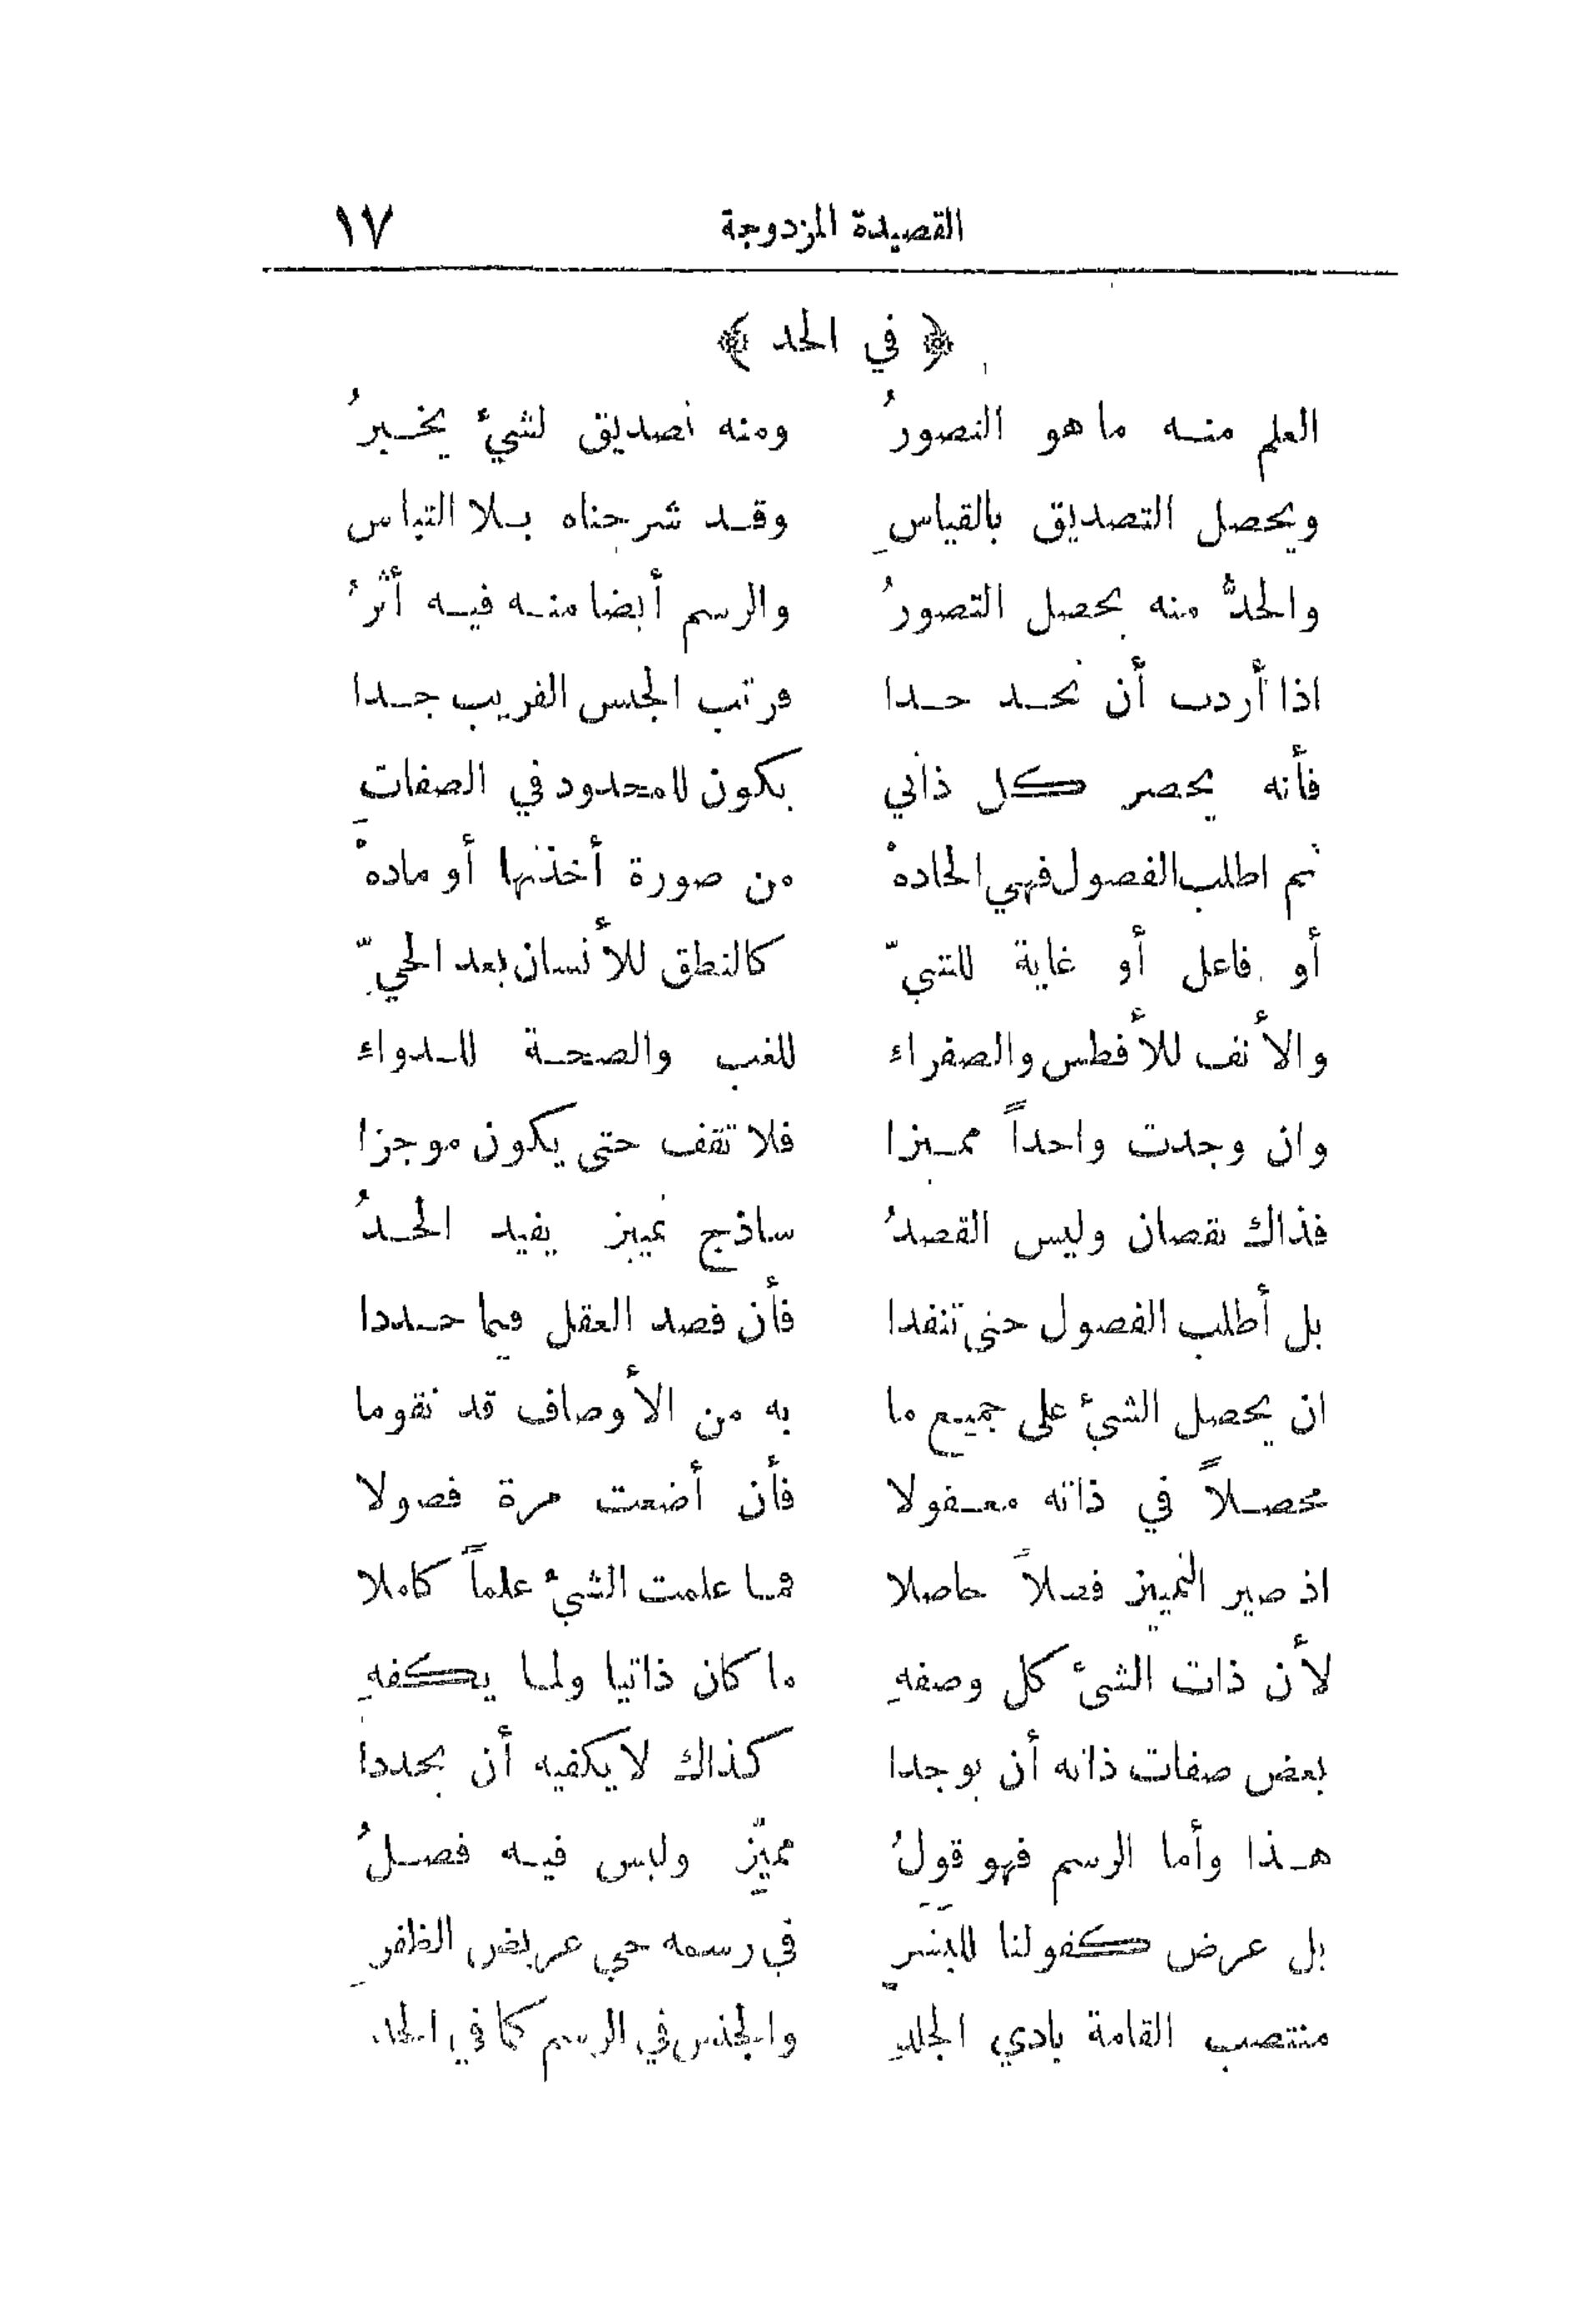 القصيدة المزدوجة ١٧
﴿ في الحد ﴾
العلم منه ما هو التصورُ ومنه تصديق لشيء يخبرُ
ويحصل التصديق بالقياسِ وقد شرحناه بلا التباس
والحدُّ منه يحصل التصورُ والرسم أيضا منه فيه أثرُ
اذا أردت أن تحد حدا فرتب الجنس القريب جدا
فأنه يحصر كل ذاتي يكون للمحدود في الصفاتِ
ثم اطلب الفصول فهي الحادهْ من صورة أخذتها أو مادهْ
أو فاعل أو غاية للشيّ كالنطق للأنسان بعد الحيّ
والأنف للأفطس والصفراء للغب والصحة للدواء
وان وجدت واحداً مميزا فلا تقف حتى يكون موجزا
فذاك نقصان وليس القصدُ ساذج تمييز يفيد الحدُ
بل أطلب الفصول حتى تنفدا فأن قصد العقل فيما حددا
ان يحصل الشيء على جميع ما به من الأوصاف قد تقوما
محصلاً في ذاته معقولا فأن أضعت مرة فصولا
اذ صير التمييز فصلاً حاصلا فما علمت الشيء علماً كاملا
لأن ذات الشيء كل وصفهِ ما كان ذاتيا ولما يكفهِ
بعض صفات ذاته أن يوجدا كذاك لا يكفيه أن يحددا
هذا وأما الرسم فهو قولُ مميّز وليس فيه فصلُ
بل عرض كقولنا للبشرِ في رسمه حي عريض الظفرِ
منتصب القامة بادي الجلدِ والجنس في الرسم كما في الحد